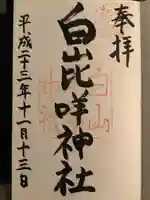 奉拝
白山比咩神社
平成二十三年十一月十三日